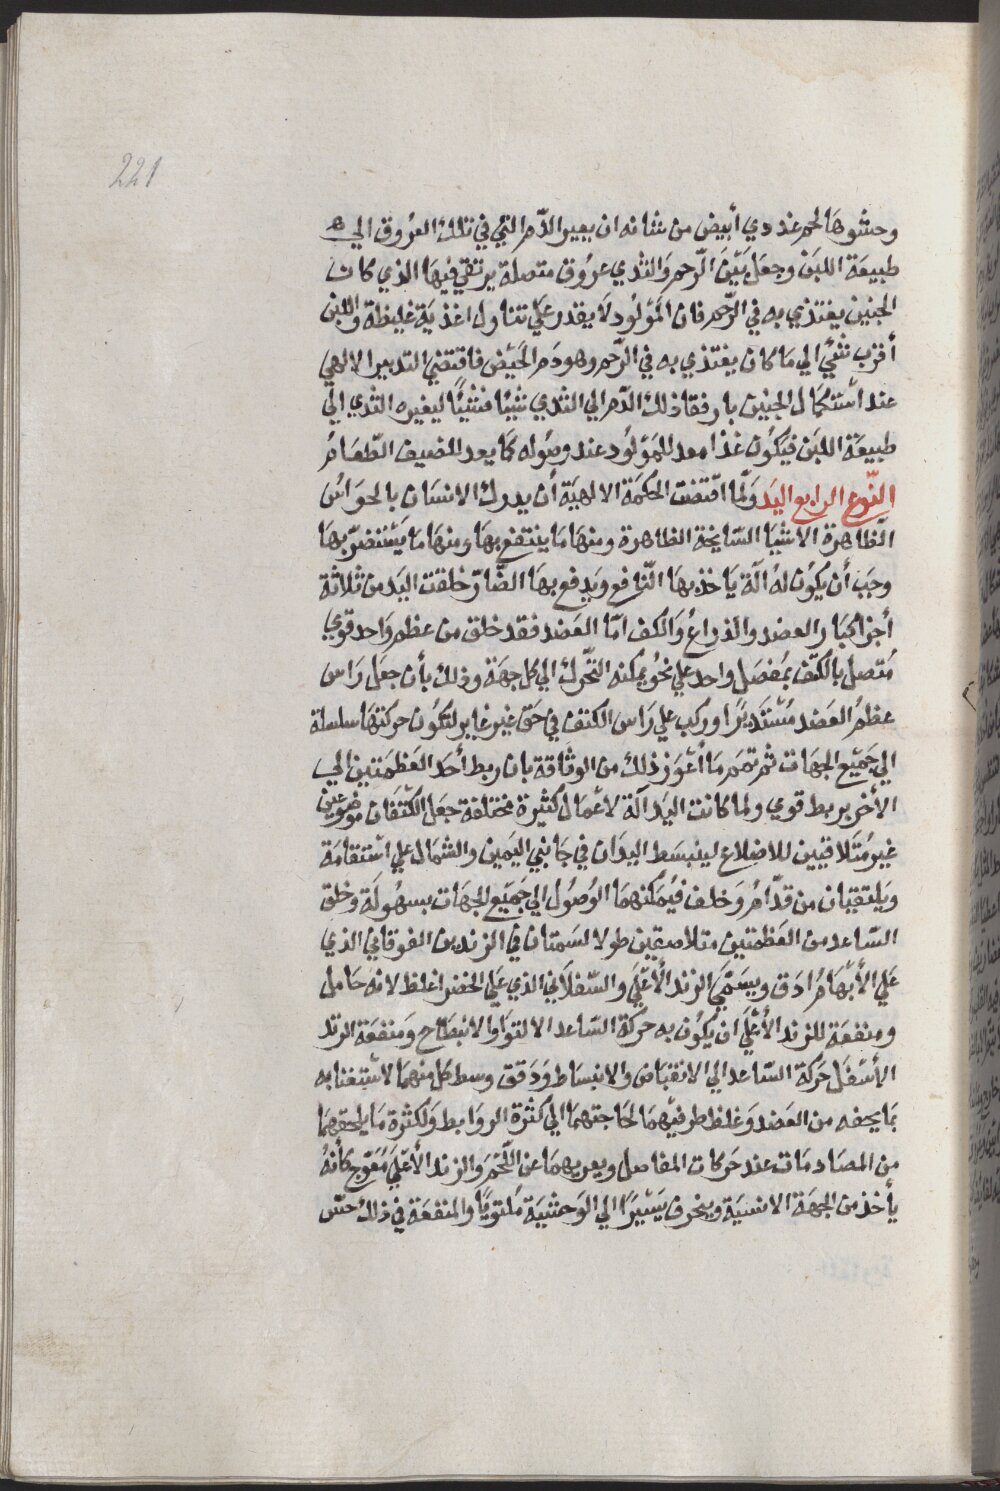 221
وحشوها لحم غددي أبيض من شانه ان يعير الدّم التي في تلك العرُوق الي
طبيعَة اللبَن وجعل بَيْنَ الرّحم وَالثدي عروُق متصلة يرتقي فيهَا الذي كان
الجنين يغتذي به في الرّحم فان المَوْلُود لَا يقدر عَلي تناول اغذيَة غليظة واللبن
أقرب شيْ الي مَا كان يغتذي به في الرّحم وهو دَم الحَيْض فاقتضي التدبير الالهي
عند اسْتكمَال الجنين بارفقا ذلك الدّم الي الثدي شيئا فشيئًا ليغيره الثدي الي
طبيعَة اللبَن فيَكُون غذا معد للمَوْلوُد عند وصُوله كمَا يعد للضيف الطّعَامُ
النّوع الرابع اليَد وَلّما اقتضت الحكمَة الالهيَة أن يدرك الانسَان بالحوَاسُ
الظَاهرة الاشيَا السّايخة الظاهرة ومنهَا مَا ينتفع بهَا ومنهَا مَا يَسْتضرّ بهَا
وجَب أن يكوُن لهُ الَة يَاخذ بهَا النّافع وَيدفع بهَا الضّارّ خلقت اليَد من ثلاثة
أجزا كبَار العضد والذراعُ وَالكف امّا العَضد فقد خلق من عظم وَاحد قوي
مُتصل بالكتف بمُفصَل واحد علي نحوُ يمكنه التحّرك الي كل جهَة وذلك بأن جعَل رَاس
عظمُ العَضد مُسْتَديرًا وركب علي رَاس الكتف في حَق غير غاير لتكوُن حركتهَا سلسلة
الي جَميْع الجهَات ثم تمم مَا أعْوَز ذلك من الوثَاقة بان ربط أحَد العَظمَتين الي
الأخر بربط قوي ولما كانت اليَد آلَة لاعْمال كثيرة مختلفة جعَل الكَتفَان موْضوعين
غير مُتَلاقيين للاضلاع لينبسَط اليدَان في جَانبي اليَمين والشمَال علي اسْتقامَة
وَيلتقيَان من قدّامُ وَخلف فيُمكنهمَا الوُصُول الي جَميْع الجهَات بسهُولَة وخلق
السّاعد من العَظمتين متلاصقين طولا يسَمتان في الزندين الفوقاني الذي
عَلي الأبْهَامُ ادَق وَيسَمّي الزند الأعْلَي والسّفلَاني الذي عَلي الخضر اغلظ لانهَ حَامل
ومنفعَة للزند الأعْلَي ان يكُون به حركة السّاعد الالتوَا والانبطاح وَمنفعَة الزند
الأسْفَل حَركة السّاعد الي الانقبَاض والانبسَاط وَدَقق وسط كل منهمَا لاسْتغنا به
بمَا يحفه من العَضد وَغلظ طرفيْهمَا لحَاجتهمَا الي كثرة الروَابط وَلكثرة مَا يلحقهمَا
من المصَادمَات عند حَركات المفاصل ويعريهمَا عن اللّحَم وَالزند الأعْلَي مُعَوّج كأنهُ
يأخذ من الجهَة الانسيَة وينحرف يَسيْرًا الي الوَحشيَة مُلتويًا والمنفعَة في ذلك حسّن